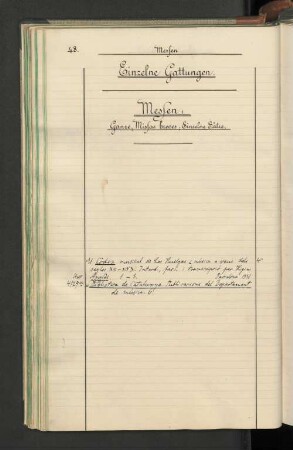 48.
Messen
Einzelne Gattungen.
Messen.
Ganze, Missae breves, Einzelne Sätze.
1) Codex musical de Las Huelgas (música a veus dels
segles XII-XIV). Introd., facs. i transcripció per Higini
Anglès 1-3. Barcelona 1931
4°
(Biblioteca de Catalunya. Publicacions del Departament
de música. 6).